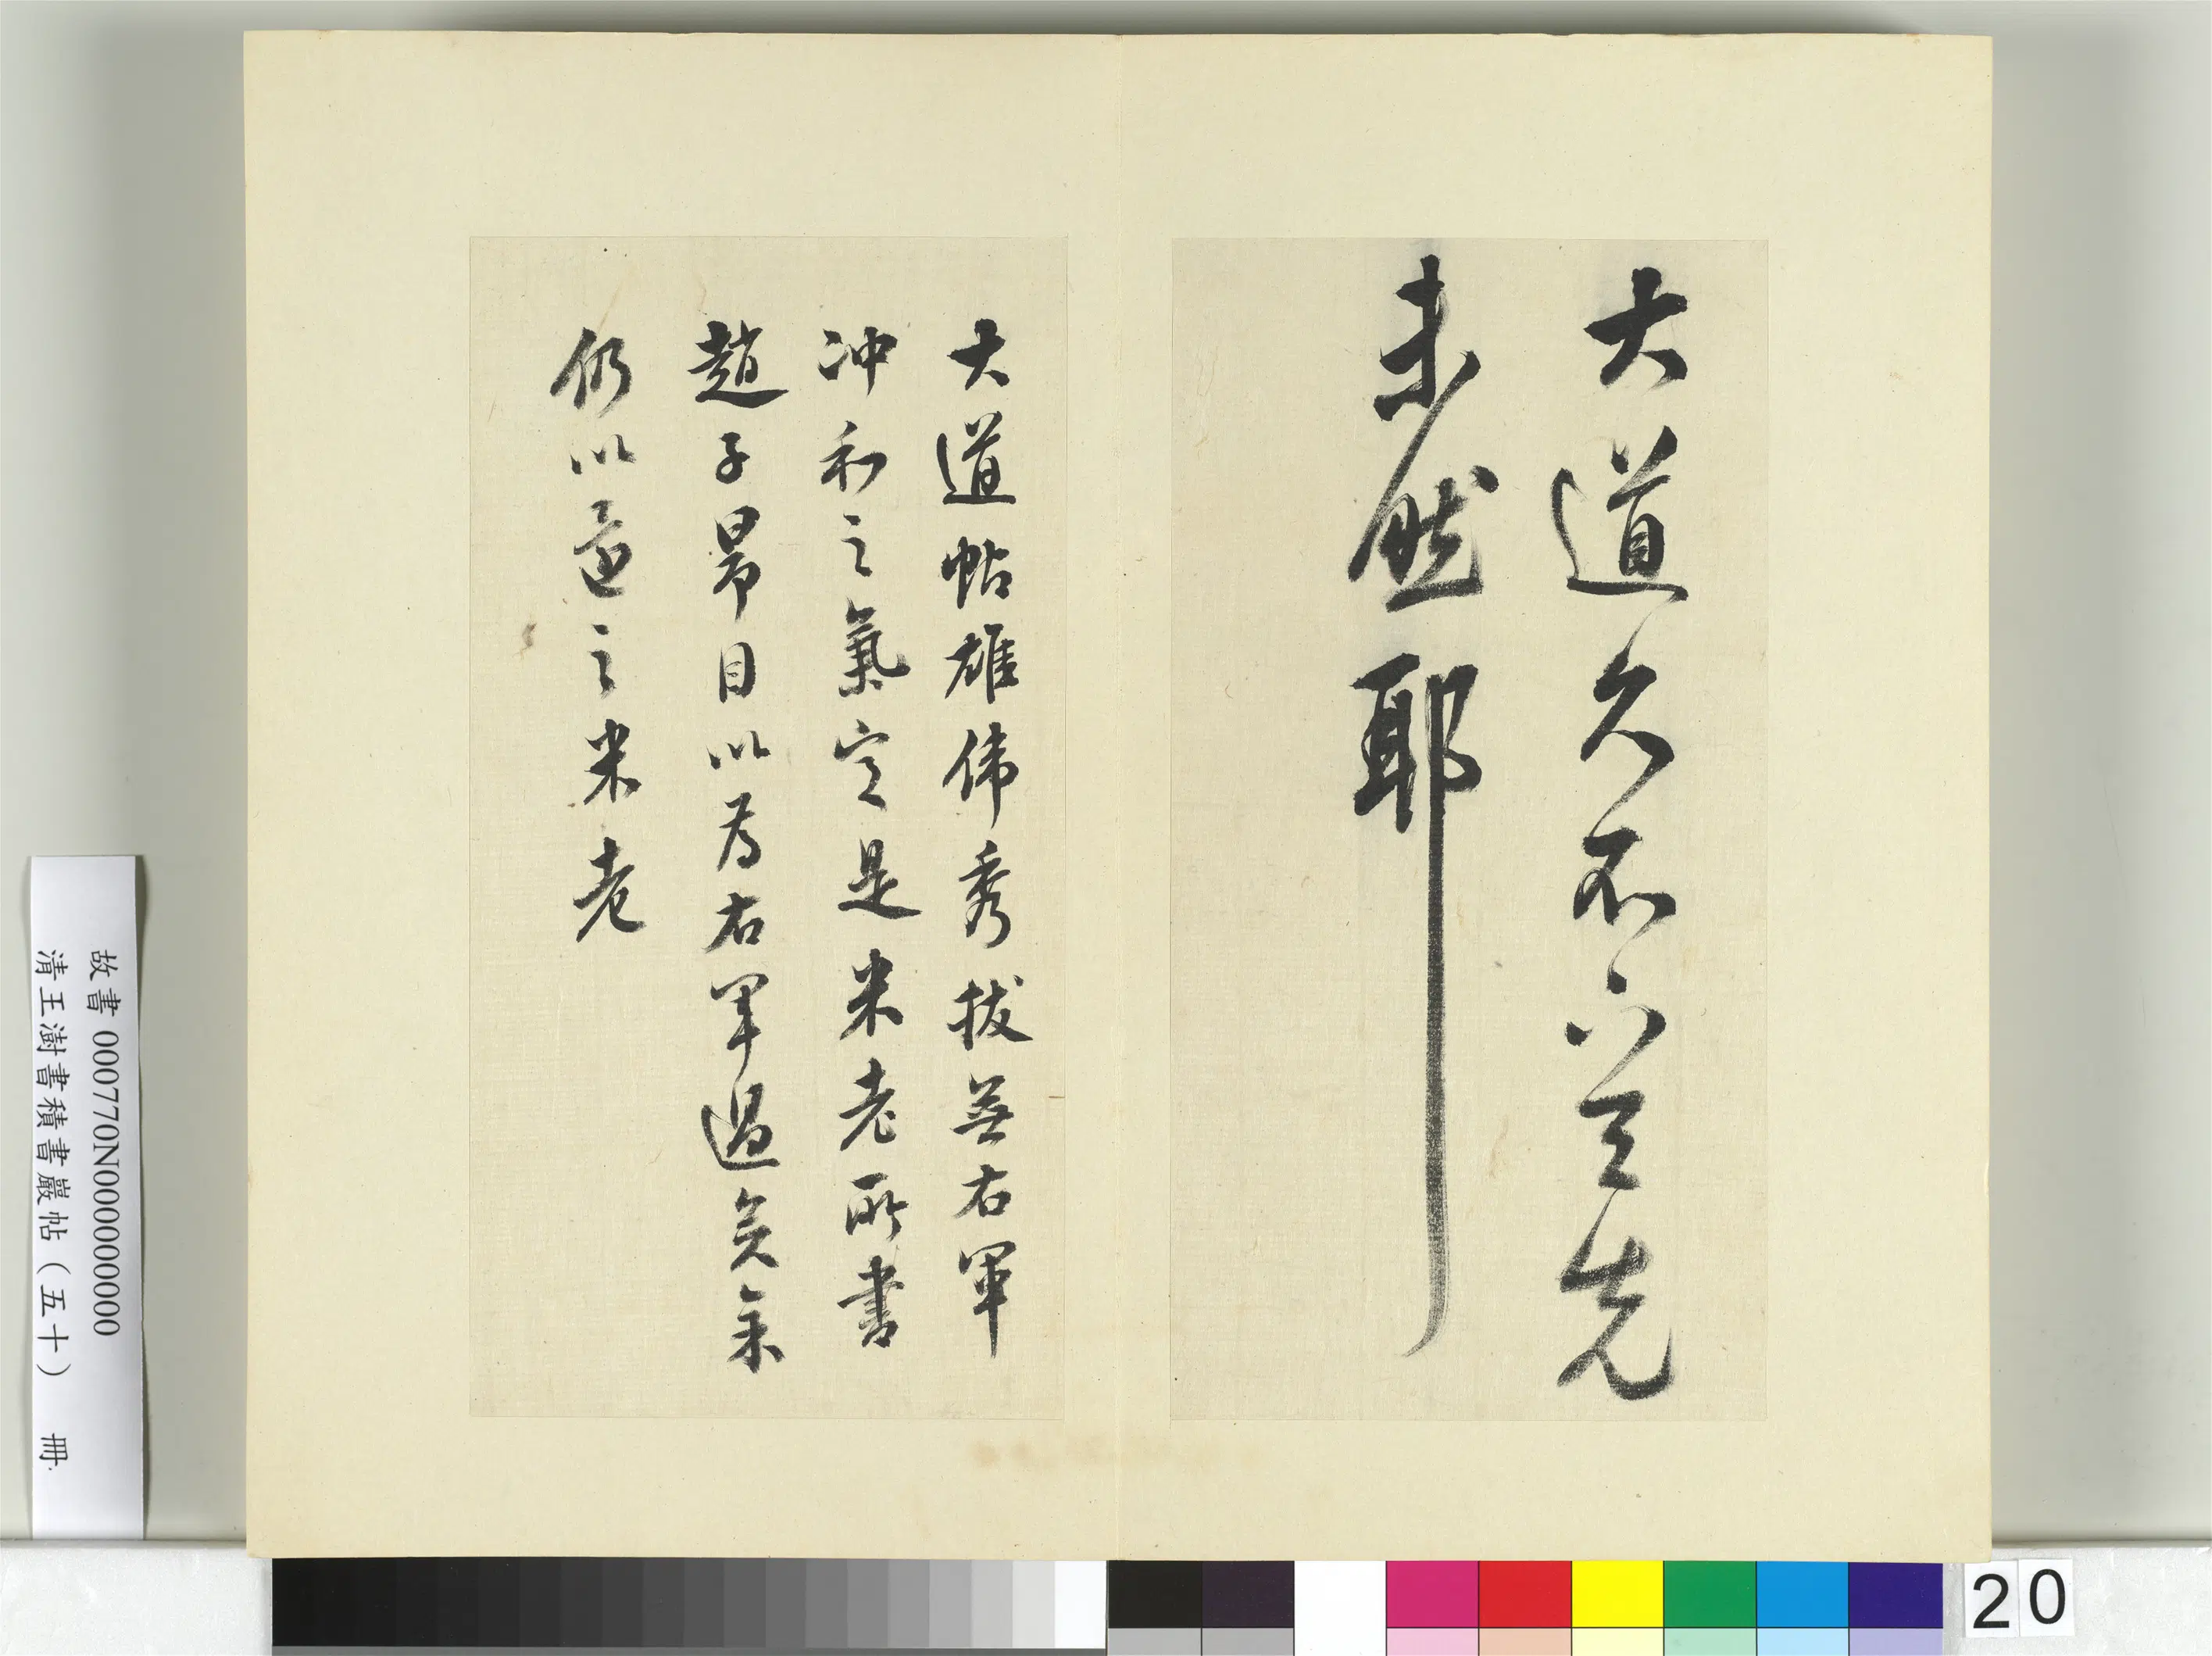 大道久不下三先
未然耶
大道帖雄偉秀拔無右軍
沖和之氣定是米老所書
趙子昂目以為右軍過矣余
仍以還之米老
故書 000770N000000000
清王澍書積書巖帖(五十) 冊
20